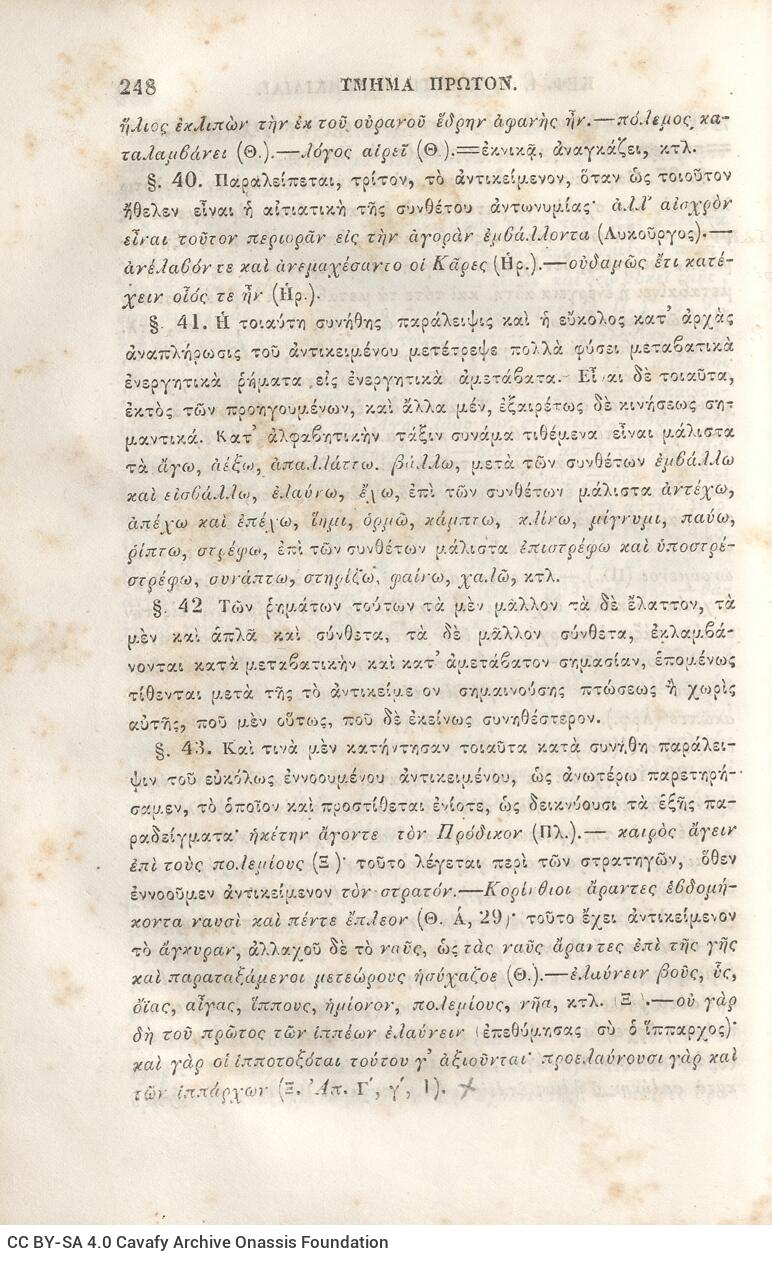 248 ΤΜΗΜΑ ΠΡΩΤΟΝ.
ἥλιος ἐκλιπὼν τὴν ἐκ τοῦ οὐρανοῦ ἕδρην ἀφανὴς ἦν.—πόλεμος κα-
ταλαμβάνει (Θ.).—λόγος αἱρεῖ (Θ.).=ἐκνικᾷ, ἀναγκάζει, κτλ.
§. 40. Παραλείπεται, τρίτον, τὸ ἀντικείμενον, ὅταν ὡς τοιοῦτον
ἤθελεν εἶναι ἡ αἰτιατικὴ τῆς συνθέτου ἀντωνυμίας· ἀλλ' αἰσχρὸν
εἶναι τοῦτον περιορᾶν εἰς τὴν ἀγορὰν ἐμβάλλοντα (Λυκοῦργος).—
ἀνέλαβόν τε καὶ ἀνεμαχέσαντο οἱ Κᾶρες (Ἡρ.).—οὐδαμῶς ἔτι κατέ-
χειν οἷός τε ἦν (Ἡρ.).
§. 41. Ἡ τοιαύτη συνήθης παράλειψις καὶ ἡ εὔκολος κατ' ἀρχὰς
ἀναπλήρωσις τοῦ ἀντικειμένου μετέτρεψε πολλὰ φύσει μεταβατικὰ
ἐνεργητικὰ ῥήματα εἰς ἐνεργητικὰ ἀμετάβατα. Εἶ αι δὲ τοιαῦτα,
ἐκτὸς τῶν προηγουμένων, καὶ ἄλλα μέν, ἐξαιρέτως δὲ κινήσεως ση-
μαντικά. Κατ' ἀλφαβητικὴν τάξιν συνάμα τιθέμενα εἶναι μάλιστα
τὰ ἄγω, ἀέξω, ἀπαλλάττω. βάλλω, μετὰ τῶν συνθέτων ἐμβάλλω
καὶ εἰσβάλλω, ἐλαύνω, ἔχω, ἐπὶ τῶν συνθέτων μάλιστα ἀντέχω,
ἀπέχω καὶ ἐπέχω, ἵημι, ὁρμῶ, κάμπτω, κλίνω, μίγνυμι, παύω,
ῥίπτω, στρέφω, ἐπὶ τῶν συνθέτων μάλιστα ἐπιστρέφω καὶ ὑποστρέ-
στρέφω, συνάπτω, στηρίζω, φαίνω, χαλῶ, κτλ.
§. 42 Τῶν ῥημάτων τούτων τὰ μὲν μᾶλλον τὰ δὲ ἔλαττον, τὰ
μὲν καὶ ἁπλᾶ καὶ σύνθετα, τὰ δὲ μᾶλλον σύνθετα, ἐκλαμβά-
νονται κατὰ μεταβατικὴν καὶ κατ' ἀμετάβατον σημασίαν, ἑπομένως
τίθενται μετὰ τῆς τὸ ἀντικείμε ον σημαινούσης πτώσεως ἢ χωρὶς
αὐτῆς, ποῦ μὲν οὕτως, ποῦ δὲ ἐκείνως συνηθέστερον.
§. 43. Καὶ τινὰ μὲν κατήντησαν τοιαῦτα κατὰ συνήθη παράλει-
ψιν τοῦ εὐκόλως ἐννοουμένου ἀντικειμένου, ὡς ἀνωτέρω παρετηρή-
σαμεν, τὸ ὁποῖον καὶ προστίθεται ἐνίοτε, ὡς δεικνύουσι τὰ ἑξῆς πα-
ραδείγματα· ἡκέτην ἄγοντε τὸν Πρόδικον (Πλ.).— καιρὸς ἄγειν
ἐπὶ τοὺς πολεμίους (Ξ)· τοῦτο λέγεται περὶ τῶν στρατηγῶν, ὅθεν
ἐννοοῦμεν ἀντικείμενον τὸν στρατόν.—Κορίνθιοι ἄραντες ἑβδομή-
κοντα ναυσὶ καὶ πέντε ἔπλεον (Θ. Ἁ, 29)· τοῦτο ἔχει ἀντικείμενον
τὸ ἄγκυραν, ἀλλαχοῦ δὲ τὸ ναῦς, ὡς τὰς ναῦς ἄραντες ἐπὶ τῆς γῆς
καὶ παραταξάμενοι μετεώρους ἡσύχαζοε (Θ.).—ἐλαύνειν βοῦς, ὗς,
ὄϊας, αἶγας, ἵππους, ἡμίονον, πολεμίους, νῆα, κτλ. (Ξ ).—οὐ γὰρ
δὴ τοῦ πρῶτος τῶν ἱππέων ἐλαύνειν (ἐπεθύμησας σὺ ὁ ἵππαρχος)·
καὶ γὰρ οἱ ἱπποτοξόται τούτου γ' ἀξιοῦνται· προελαύνουσι γὰρ καὶ
τῶν ἱππάρχων (Ξ. Ἀπ. Γ΄, γ΄, 1).
CC BY-SA 4.0 Cavafy Archive Onassis Foundation